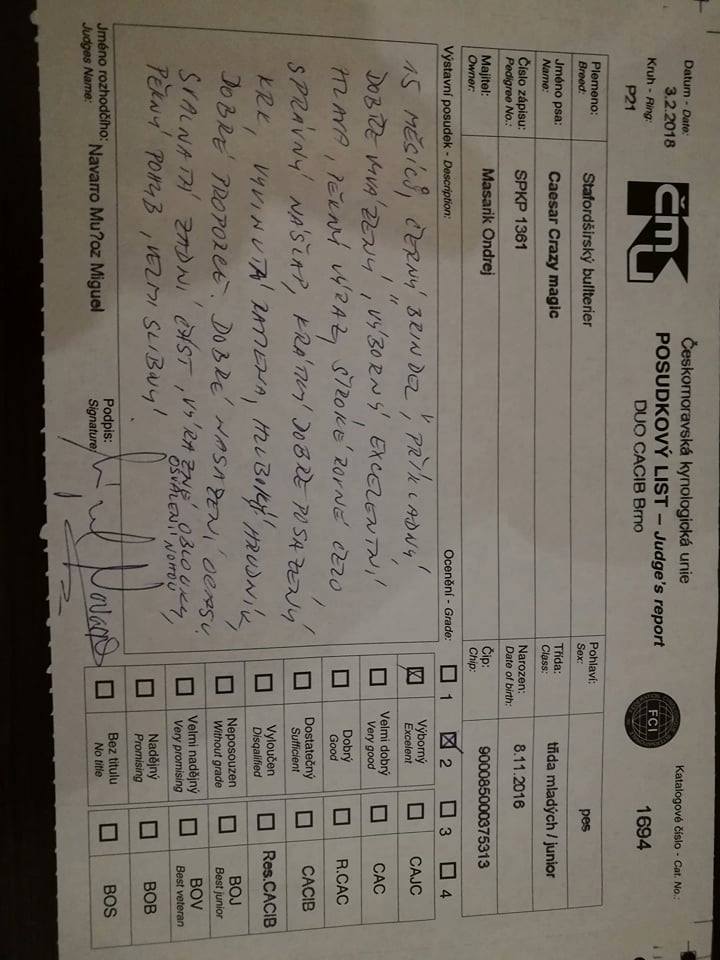 Českomoravská kynologická unie
POSUDKOVÝ LIST – Judge's report
DUO CACIB Brno
Datum - Date:
3.2.2018
Kruh - Ring:
P21
ČMKU
FCI
Katalogové číslo - Cat. No.:
1694
Plemeno:
Breed:
Stafordšírský bullterier
Pohlaví:
Sex:
pes
Jméno psa:
Name:
Caesar Crazy magic
Třída:
Class:
třída mladých / junior
Číslo zápisu:
Pedigree No.:
SPKP 1361
Narozen:
Date of birth:
8.11.2016
Majitel:
Owner:
Masarik Ondrej
Čip:
Chip:
900085000375313
Výstavní posudek - Description:
Ocenění - Grade:
1 2 3 4
15 MĚSÍCŮ, ČERNÝ BRINDEL, PŘÍKLADNÝ
DOBŘE VYVÁŽENÝ, VÝBORNÝ EXCELENTNÍ
HLAVA, PĚKNÝ VÝRAZ, ŠIROKÉ ROVNÉ ČELO
SPRÁVNÝ NÁŠLAP, KRÁTKÝ DOBŘE POSAZENÝ
KRK, VYVINUTÁ RAMENA, HLUBOKÝ HRUDNÍK,
DOBRÉ PROPORCE. DOBRÉ NASAZENÍ OCASU.
SVALNATÁ ZADNÍ ČÁST, VÝRAZNÉ OBLOUKY,
OSVALENÍ NOHOU,
PĚKNÝ POHYB, VELMI SLIBNÝ
Výborný
Excelent
CAJC
Velmi dobrý
Very good
CAC
Dobrý
Good
R.CAC
Dostatečný
Sufficient
CACIB
Vyloučen
Disqalified
Res.CACIB
Neposouzen
Without grade
BOJ
Best junior
Velmi nadějný
Very promising
BOV
Best veteran
Nadějný
Promising
BOB
Bez titulu
No title
BOS
Jméno rozhodčího:
Judges Name:
Navarro Mu?oz Miguel
Podpis:
Signature: